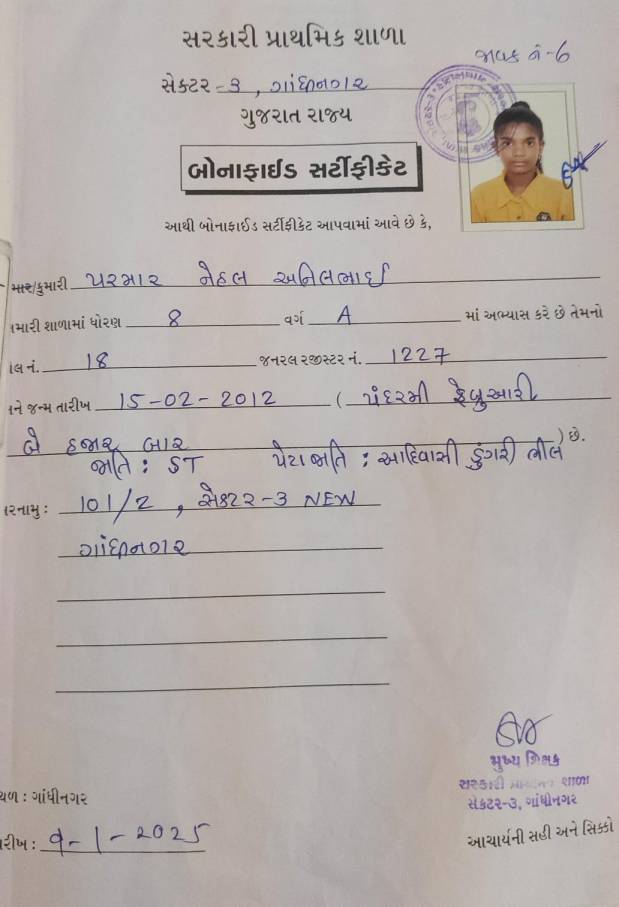 સરકારી પ્રાથમિક શાળા
જાવક નં-6
સેક્ટર - 3, ગાંધીનગર
ગુજરાત રાજ્ય
બોનાફાઈડ સર્ટીફીકેટ
આથી બોનાફાઈડ સર્ટીફીકેટ આપવામાં આવે છે કે,
માસ્ટર/કુમારી પરમાર નેહલ અનિલભાઈ
અમારી શાળામાં ધોરણ 8 વર્ગ A માં અભ્યાસ કરે છે તેમનો
રોલ નં. 18 જનરલ રજીસ્ટર નં. 1227
અને જન્મ તારીખ 15-02-2012 ( પંદરમી ફેબ્રુઆરી
બે હજાર બાર ) છે.
જાતિ : ST પેટા જાતિ : આદિવાસી ડુંગરી ભીલ
સરનામુ : 101/2, સેક્ટર-3 NEW
ગાંધીનગર
મુખ્ય શિક્ષક
સરકારી પ્રાથમિક શાળા
સેક્ટર-૩, ગાંધીનગર
સ્થળ : ગાંધીનગર
તારીખ : 9-1-2025
આચાર્યની સહી અને સિક્કો